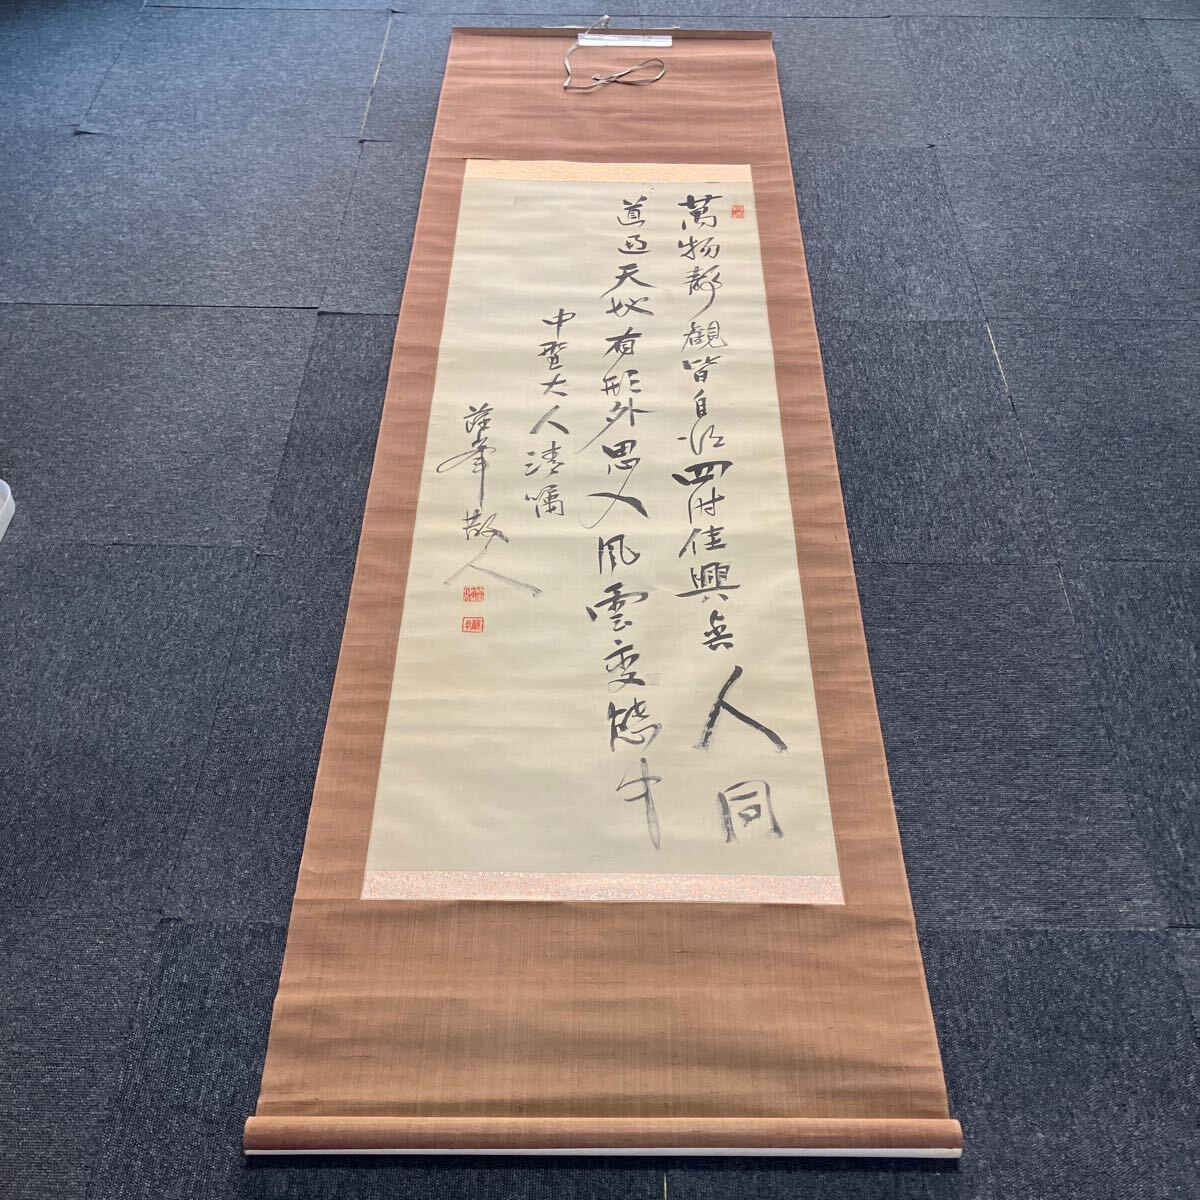 萬物静觀皆自得四時佳興與人同
道通天地有形外思入風雲変態中
中大人清嘱
峯散人